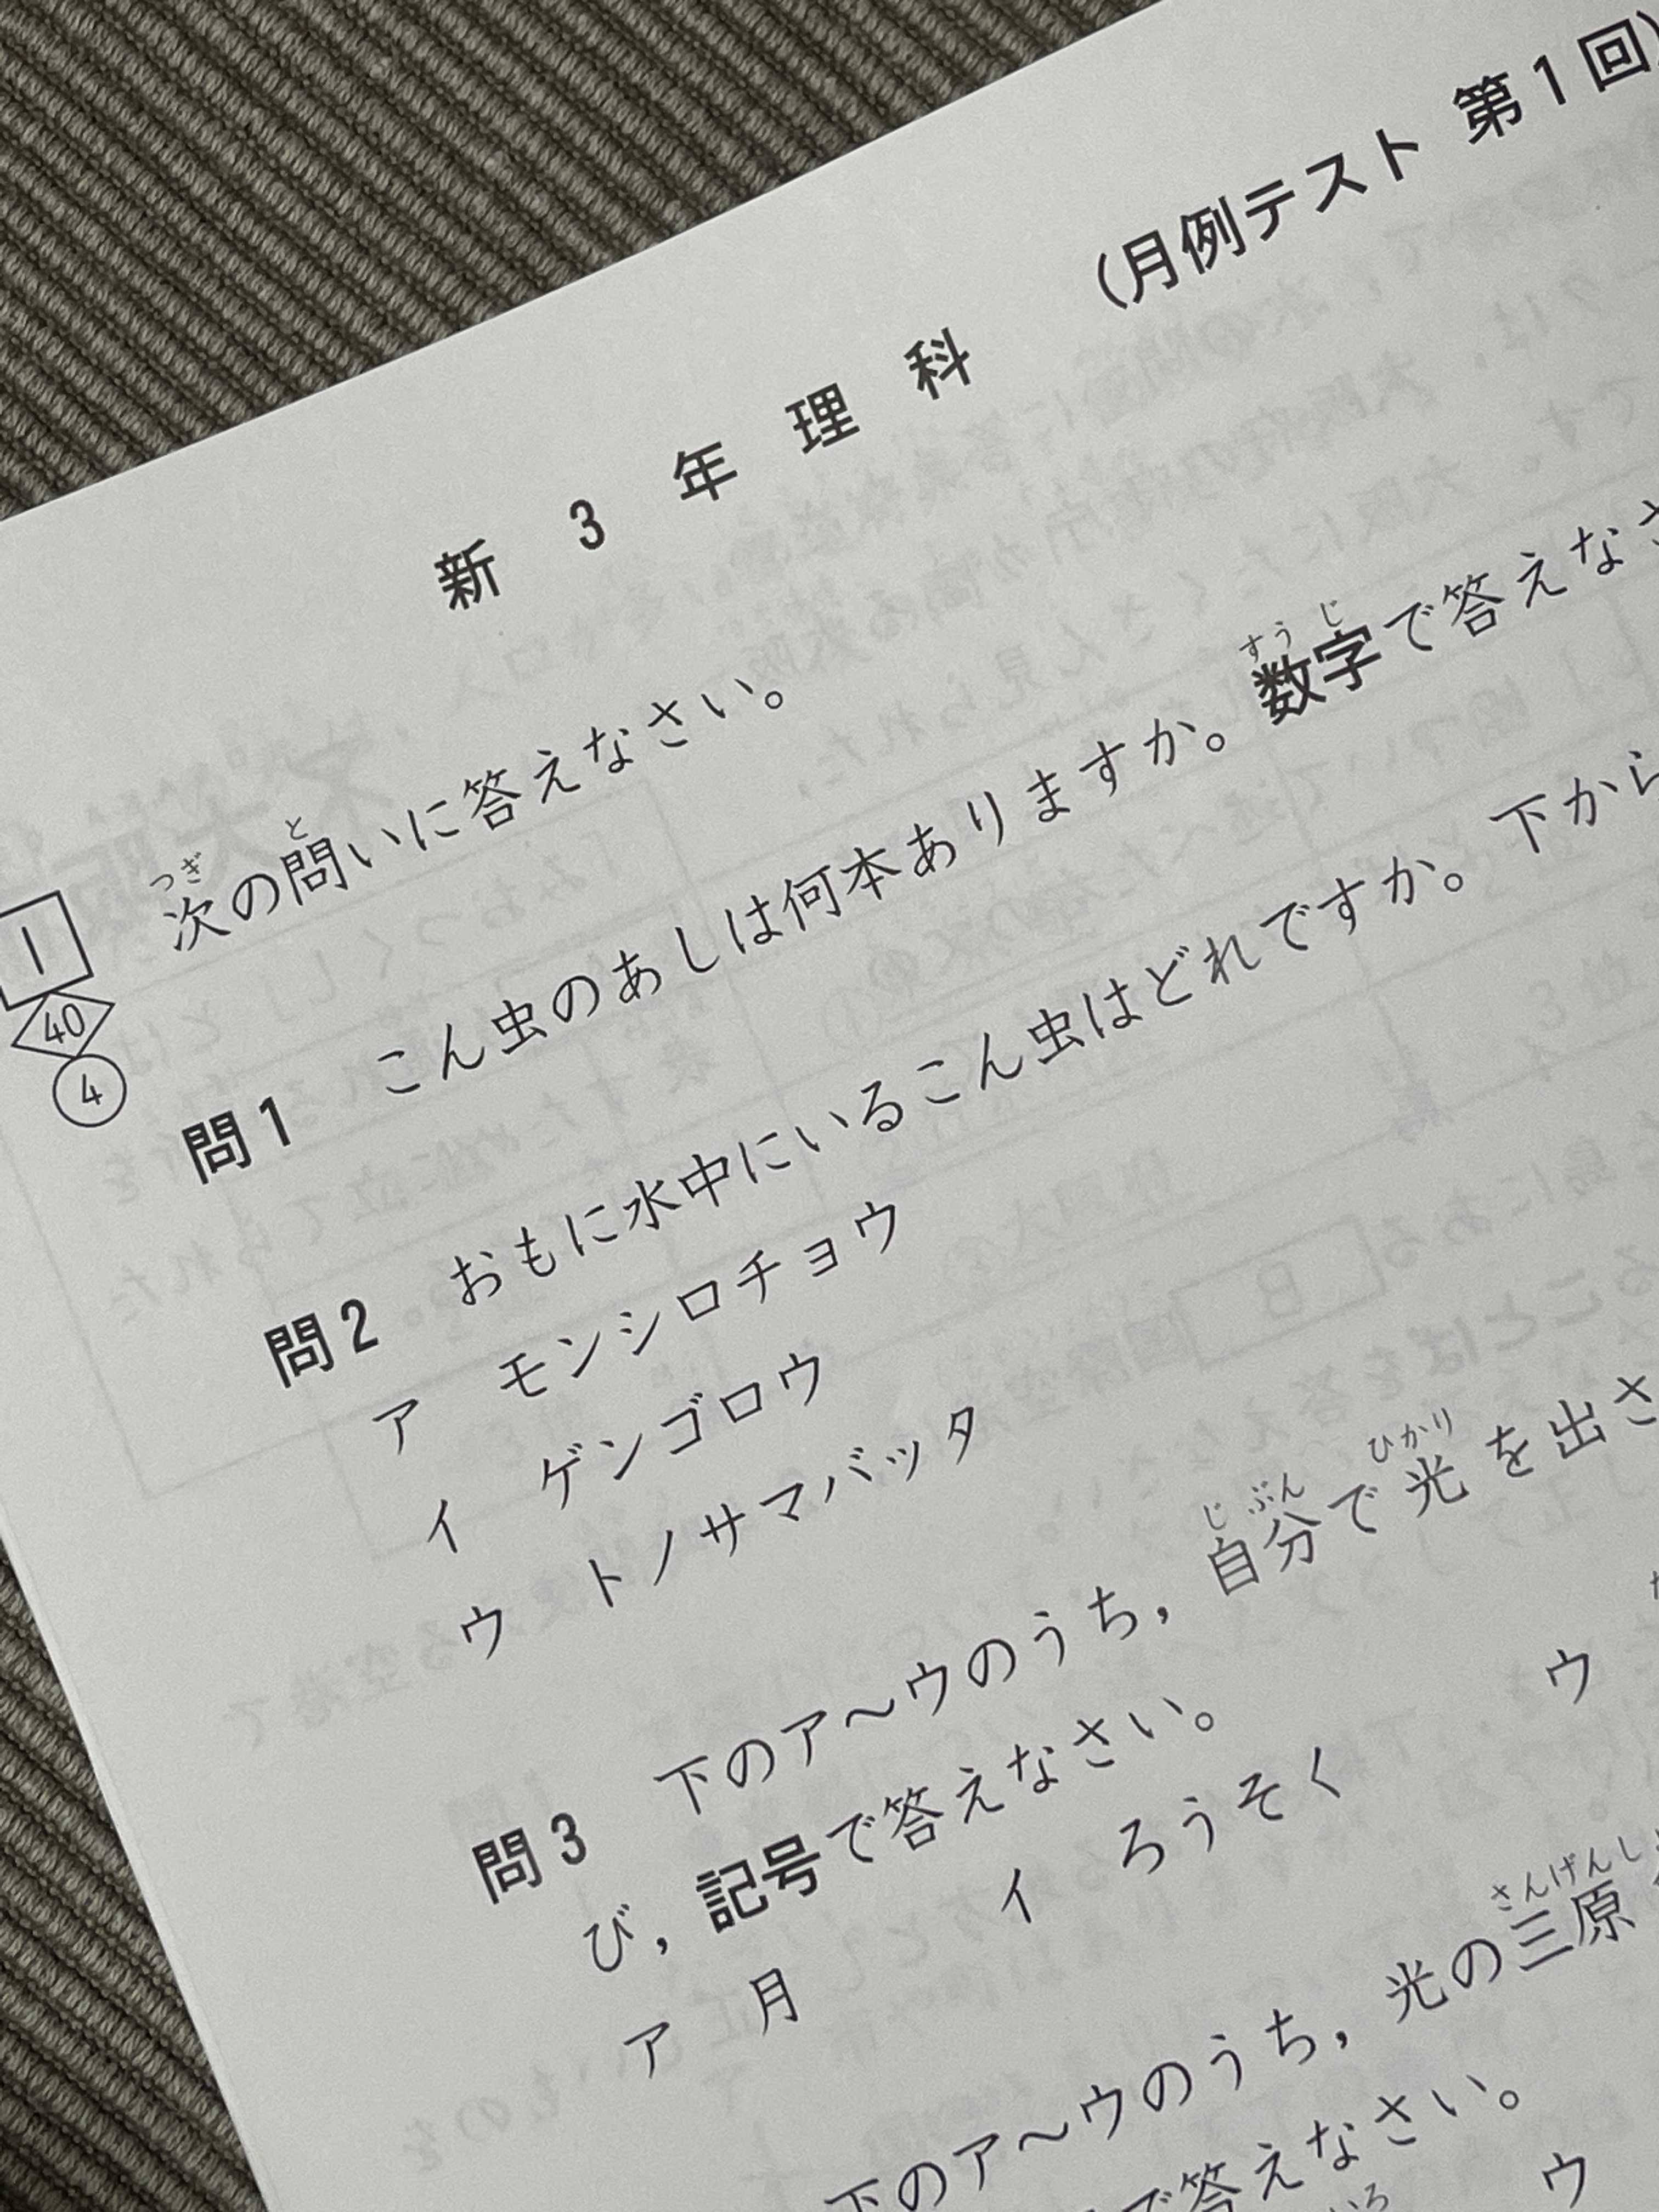 新 3 年 理 科 (月例テスト 第1回)
1 次の問いに答えなさい。
つぎ と
40
4
問1 こん虫のあしは何本ありますか。数字で答えなさ
すう じ
問2 おもに水中にいるこん虫はどれですか。下から
ア モンシロチョウ
イ ゲンゴロウ
ウ トノサマバッタ
問3 下のア～ウのうち，自分で光を出さ
じ ぶん ひかり
び，記号で答えなさい。
ア 月 イ ろうそく ウ
下のア～ウのうち，光の三原
さんげんし
で答えなさい。
いろ
ウ